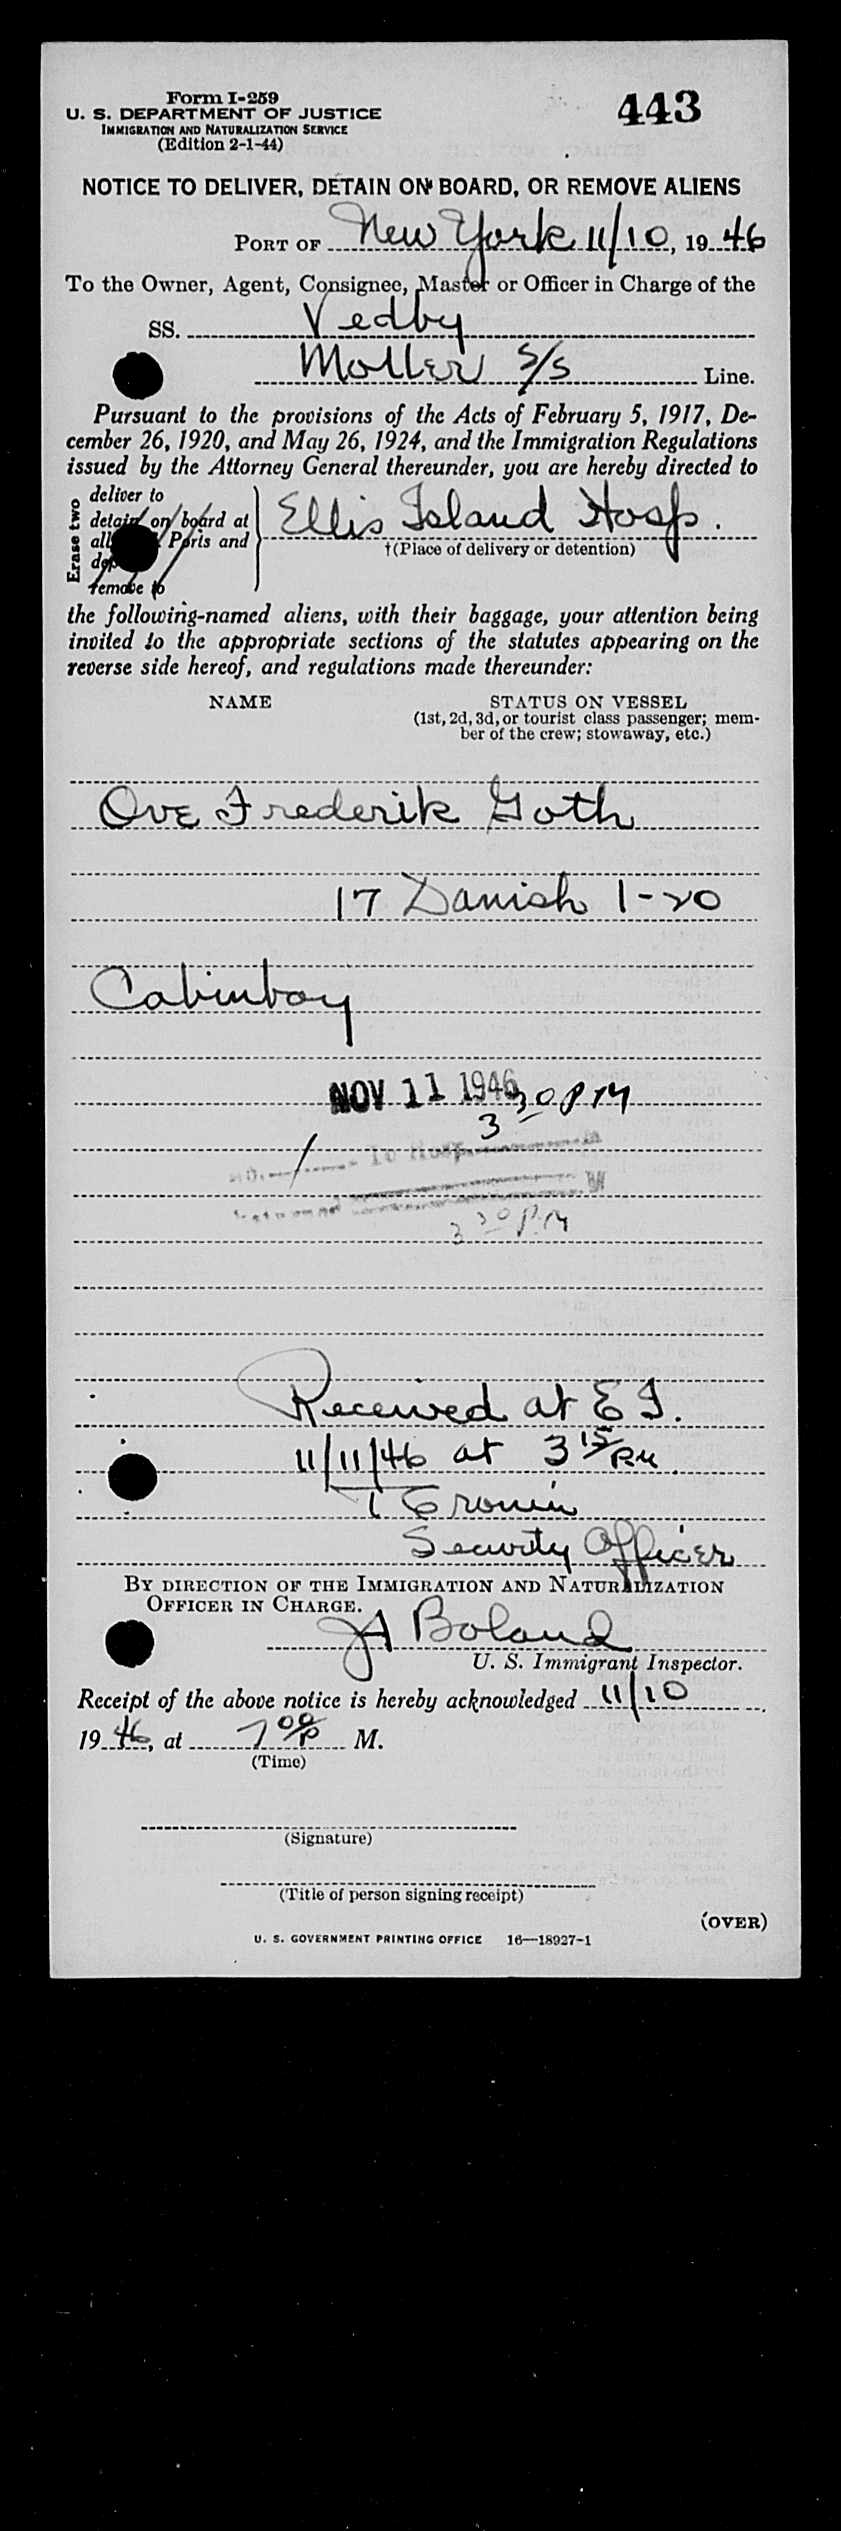 Form I-259
443
U. S. DEPARTMENT OF JUSTICE
IMMIGRATION AND NATURALIZATION SERVICE
(Edition 2-1-44)
NOTICE TO DELIVER, DETAIN ON BOARD, OR REMOVE ALIENS
PORT OF New York 11/10, 1946
To the Owner, Agent, Consignee, Master or Officer in Charge of the
SS. Vedby
Moller S/S Line.
Pursuant to the provisions of the Acts of February 5, 1917, De-
cember 26, 1920, and May 26, 1924, and the Immigration Regulations
issued by the Attorney General thereunder, you are hereby directed to
Erase two
deliver to
detain on board at
all Ports and
remove to
Ellis Island Hosp.
†(Place of delivery or detention)
the following-named aliens, with their baggage, your attention being
invited to the appropriate sections of the statutes appearing on the
reverse side hereof, and regulations made thereunder:
NAME STATUS ON VESSEL
(1st, 2d, 3d, or tourist class passenger; mem-
ber of the crew; stowaway, etc.)
Ove Frederik Goth
17 Danish 1-20
Cabinboy
NOV 11 1946
3 30 PM
1 To Hosp.
3 30 PM
Received at E I.
11/11/46 at 3 15 PM.
T Cronin
Security Officer
BY DIRECTION OF THE IMMIGRATION AND NATURALIZATION
OFFICER IN CHARGE.
JA Boland
U. S. Immigrant Inspector.
Receipt of the above notice is hereby acknowledged 11/10
1946, at 7 00 P M.
(Time)
(Signature)
(Title of person signing receipt)
(OVER)
U. S. GOVERNMENT PRINTING OFFICE 16—18927-1